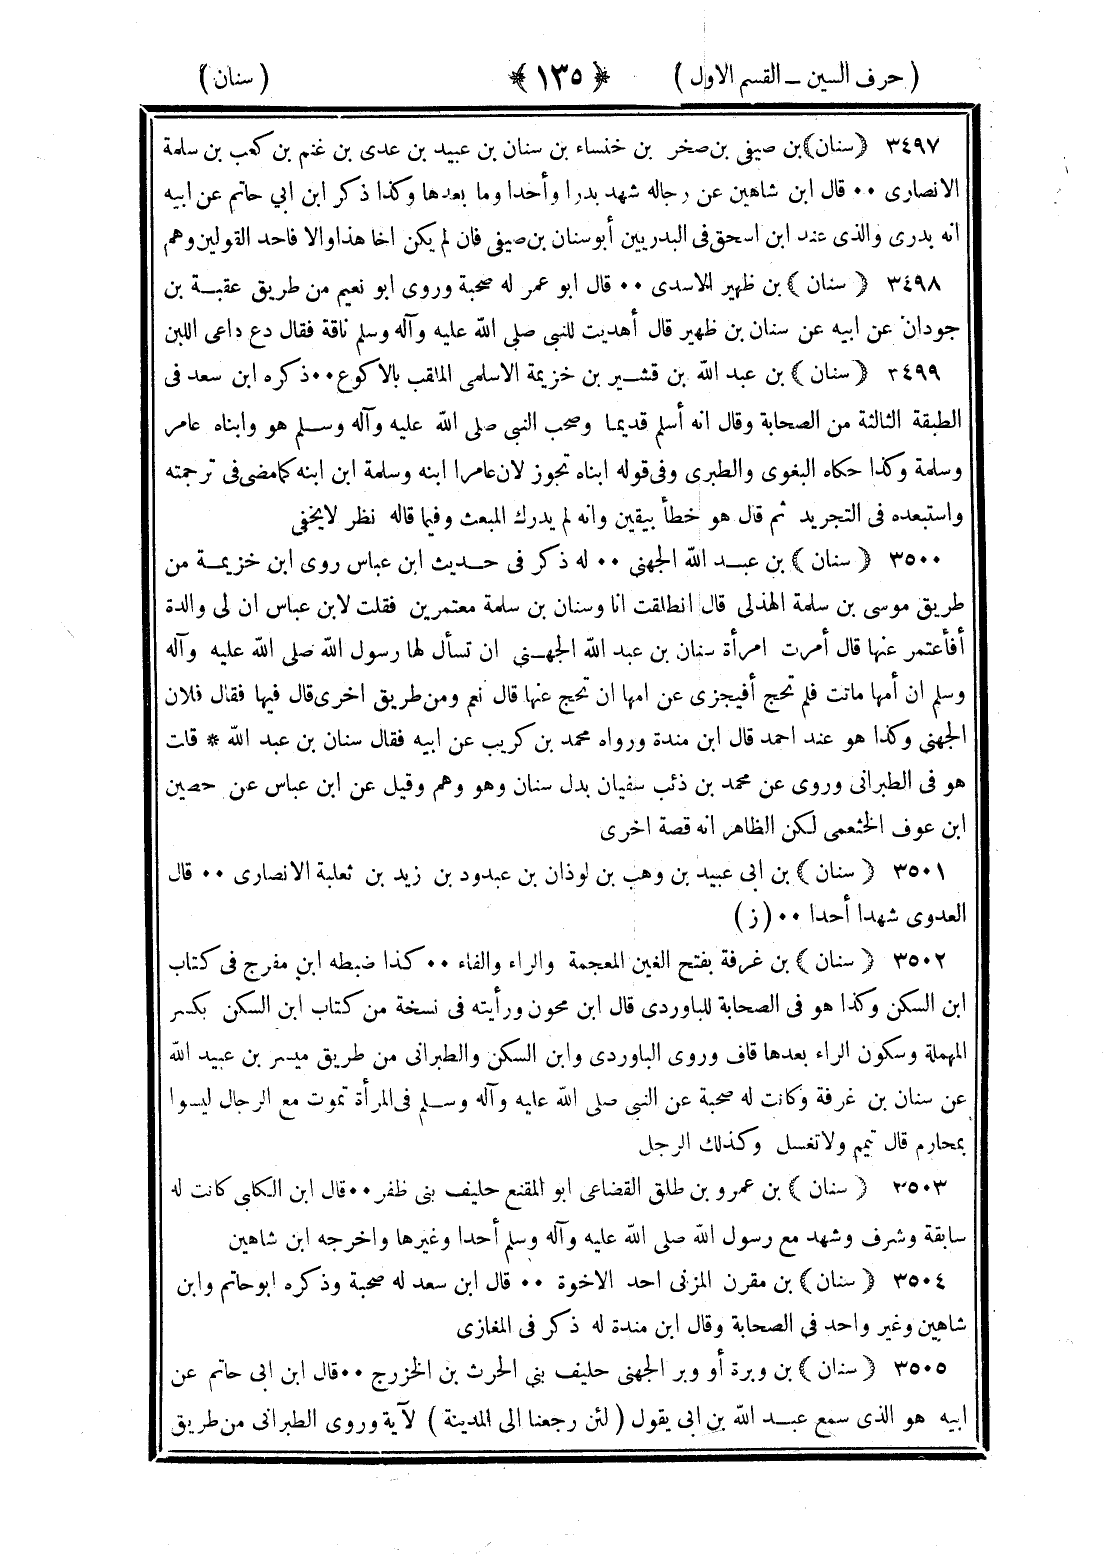 ( حرف السين ــ القسم الاول ) ﴿ ١٣٥ ﴾ ( سنان )
٣٤٩٧ ﴿ سنان ﴾ بن صيفى بن صخر بن خنساء بن سنان بن عبيد بن عدى بن غنم بن كعب بن سلمة
الانصارى ٠٠ قال ابن شاهين عن رجاله شهد بدرا وأحدا وما بعدها وكذا ذكر ابن ابي حاتم عن ابيه
انه بدرى والذى عند ابن اسحق فى البدريين أبو سنان بن صيفى فان لم يكن اخا هذا والا فاحد القولين وهم
٣٤٩٨ ﴿ سنان ﴾ بن ظهير الاسدى ٠٠ قال ابو عمر له صحبة وروى ابو نعيم من طريق عقبة بن
جودان عن ابيه عن سنان بن ظهير قال أهديت للنبي صلى الله عليه وآله وسلم ناقة فقال دع داعى اللبن
٣٤٩٩ ﴿ سنان ﴾ بن عبد الله بن قشير بن خزيمة الاسلمى الملقب بالاكوع ٠٠ ذكره ابن سعد فى
الطبقة الثالثة من الصحابة وقال انه أسلم قديما وصحب النبي صلى الله عليه وآله وسلم هو وابناه عامر
وسلمة وكذا حكاه البغوى والطبرى وفى قوله ابناه تجوز لان عامرا ابنه وسلمة ابن ابنه كما مضى فى ترجمته
واستبعده فى التجريد ثم قال هو خطأ بيقين وانه لم يدرك المبعث وفيما قاله نظر لا يخفى
٣٥٠٠ ﴿ سنان ﴾ بن عبد الله الجهنى ٠٠ له ذكر فى حديث ابن عباس روى ابن خزيمة من
طريق موسى بن سلمة الهذلى قال انطلقت انا وسنان بن سلمة معتمرين فقلت لابن عباس ان لى والدة
أفأعتمر عنها قال أمرت امرأة سنان بن عبد الله الجهني ان تسأل لها رسول الله صلى الله عليه وآله
وسلم ان أمها ماتت فلم تحج أفيجزى عن امها ان تحج عنها قال نعم ومن طريق اخرى قال فيها فقال فلان
الجهنى وكذا هو عند احمد قال ابن مندة ورواه محمد بن كريب عن ابيه فقال سنان بن عبد الله * قات
هو فى الطبرانى وروى عن محمد بن ذئب سفيان بدل سنان وهو وهم وقيل عن ابن عباس عن حصين
ابن عوف الخثعمى لكن الظاهر انه قصة اخرى
٣٥٠١ ﴿ سنان ﴾ بن ابى عبيد بن وهب بن لوذان بن عبدود بن زيد بن ثعلبة الانصارى ٠٠ قال
العدوى شهدا أحدا ٠٠ ( ز )
٣٥٠٢ ﴿ سنان ﴾ بن غرفة بفتح الغين المعجمة والراء والفاء ٠٠ كذا ضبطه ابن مفرج فى كتاب
ابن السكن وكذا هو فى الصحابة للباوردى قال ابن محون ورأيته فى نسخة من كتاب ابن السكن بكسر
المهملة وسكون الراء بعدها قاف وروى الباوردى وابن السكن والطبرانى من طريق ميسر بن عبيد الله
عن سنان بن غرفة وكانت له صحبة عن النبى صلى الله عليه وآله وسلم فى المرأة تموت مع الرجال ليسوا
بمحارم قال تيمم ولا تغسل وكذلك الرجل
٣٥٠٣ ﴿ سنان ﴾ بن عمرو بن طلق القضاعى ابو المقنع حليف بنى ظفر ٠٠ قال ابن الكلبى كانت له
سابقة وشرف وشهد مع رسول الله صلى الله عليه وآله وسلم أحدا وغيرها واخرجه ابن شاهين
٣٥٠٤ ﴿ سنان ﴾ بن مقرن المزنى احد الاخوة ٠٠ قال ابن سعد له صحبة وذكره ابو حاتم وابن
شاهين وغير واحد فى الصحابة وقال ابن مندة له ذكر فى المغازى
٣٥٠٥ ﴿ سنان ﴾ بن وبرة أو وبر الجهنى حليف بني الحرث بن الخزرج ٠٠ قال ابن ابى حاتم عن
ابيه هو الذى سمع عبد الله بن ابى يقول ( لئن رجعنا الى المدينة ) لآية وروى الطبرانى من طريق